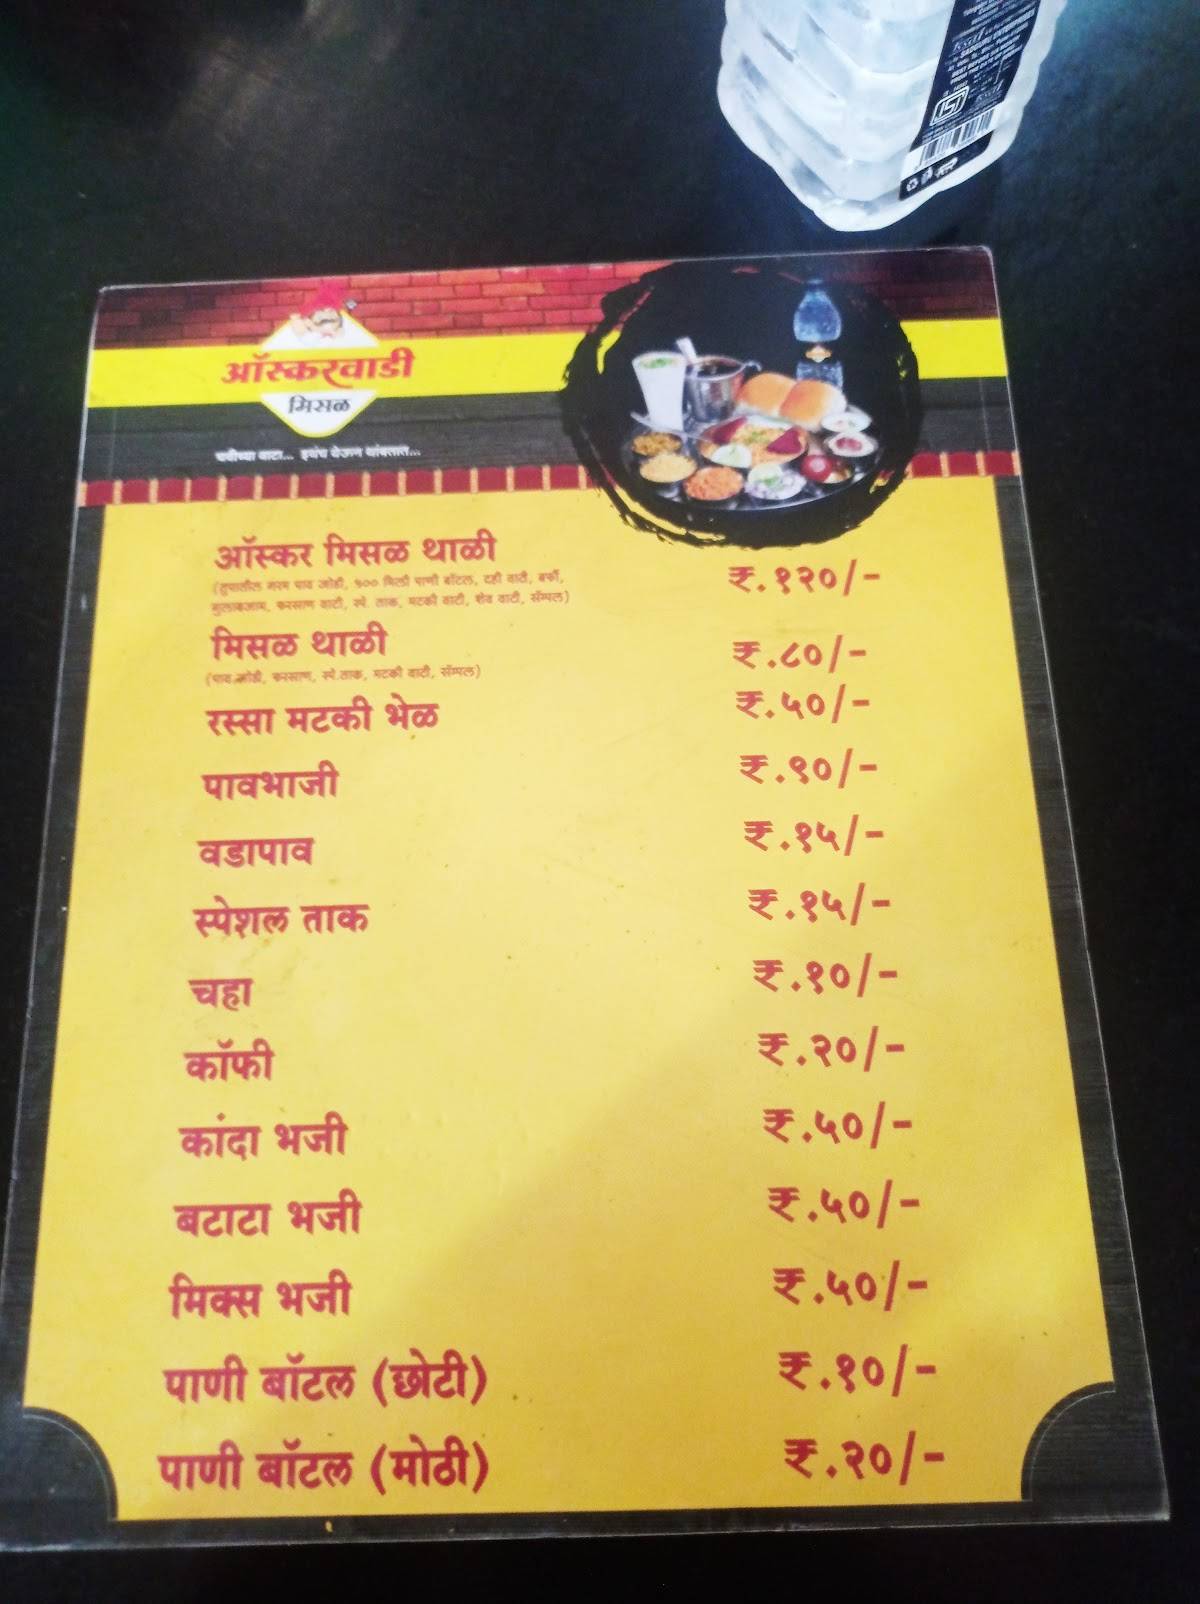 ऑस्करवाडी
मिसळ
चवीच्या वाटा... इथंच येऊन थांबतात...
ऑस्कर मिसळ थाळी ₹.१२०/-
(तुपातील गरम पाव जोडी, ५०० मिली पाणी बॉटल, दही वाटी, बर्फी,
गुलाबजाम, फरसाण वाटी, स्पे. ताक, मटकी वाटी, शेव वाटी, सॅम्पल)
मिसळ थाळी ₹.८०/-
(पाव जोडी, फरसाण, स्पे.ताक, मटकी वाटी, सॅम्पल)
रस्सा मटकी भेळ ₹.५०/-
पावभाजी ₹.९०/-
वडापाव ₹.१५/-
स्पेशल ताक ₹.१५/-
चहा ₹.१०/-
कॉफी ₹.२०/-
कांदा भजी ₹.५०/-
बटाटा भजी ₹.५०/-
मिक्स भजी ₹.५०/-
पाणी बॉटल (छोटी) ₹.१०/-
पाणी बॉटल (मोठी) ₹.२०/-